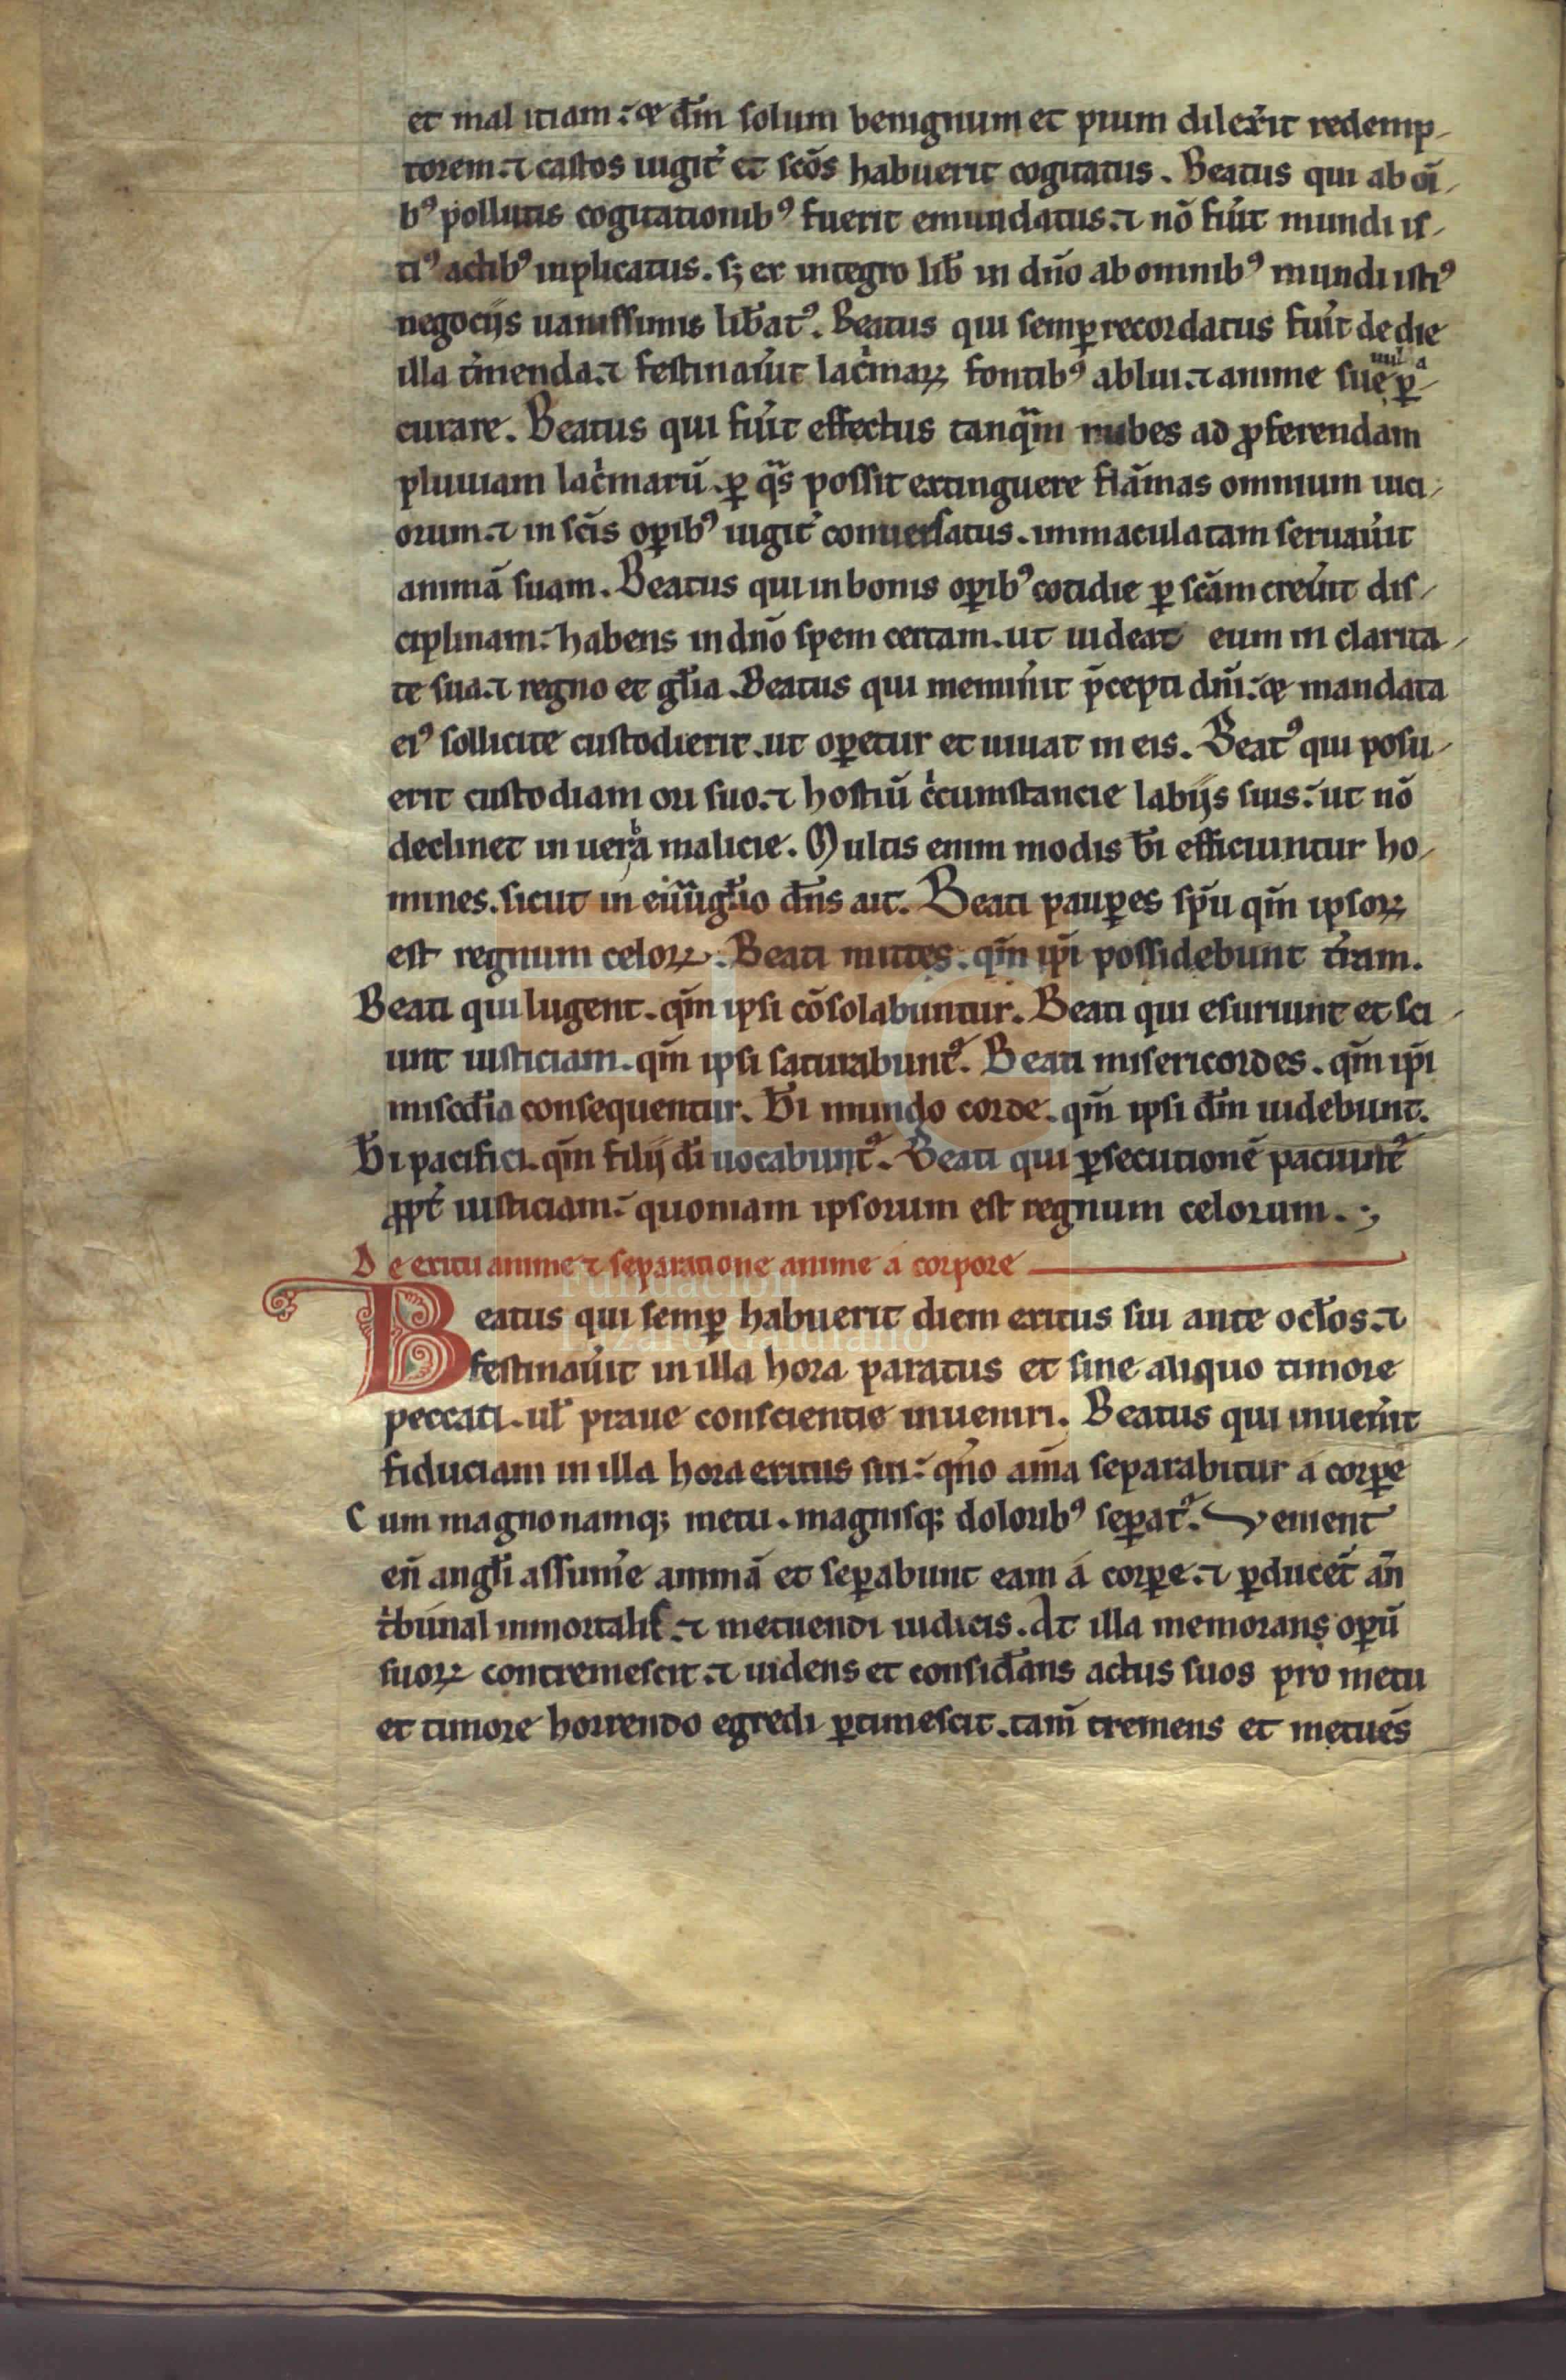 et mal itiam : & dm̄ solum benignum et pium dilex̓it redemp-
torem. ⁊ castos iugit̓ et sc̄os habuerit cogitatus. Beatus qui ab oī-
bꝰ pollutis cogitationibꝰ fuerit emundatus. ⁊ nō fu̓it mundi is-
tiꝰ actibꝰ inplicatus. sꝫ ex integro lib̄ in dn̄o ab omnibꝰ mundi istiꝰ
negociis uanissimis lib̄atꝰ. Beatus qui semꝑ recordatus fu̓it de die
illa t̓menda. ⁊ festinau̓it lac̓maꝝ fontibꝰ ablui. ⁊ anime sue ꝑ-
curare. Beatus qui fu̓it effectus tanqᵃm nubes ad ꝓferendam
pluuiam lac̓marū. ꝑ qᵃs possit extinguere flāmas omnium uici-
orum. ⁊ in sc̄is oꝑibꝰ iugit̓ conuersatus. immaculatam seruau̓it
animā suam. Beatus qui in bonis oꝑibꝰ cotidie ꝑ sc̄am creu̓it dis-
ciplinam : habens in dn̄o spem certam. ut uideat eum in clarita-
te sua. ⁊ regno et gl̄ia. Beatus qui memin̓it p̄cepti dn̄i : & mandata
eiꝰ sollicite custodierit. ut oꝑetur et uiuat in eis. Beatꝰ qui posu-
erit custodiam ori suo. ⁊ hostiū c̓cumstancie labiis suis : ut nō
declinet in uerba malicie. Multis enim modis b̄i efficiuntur ho-
mines. sicut in euuḡlio dn̄s ait. Beati pauꝑes sp̄u qm̄ ipsoꝝ
est regnum celoꝝ. Beati mittes. qm̄ ip̄i possidebunt t̓ram.
Beati qui lugent. qm̄ ipsi cōsolabuntur. Beati qui esuriunt et sci-
unt iusticiam. qm̄ ipsi saturabunt᷑. Beati misericordes. qm̄ ip̄i
miscd̄ia consequentur. B̄i mundo corde. qm̄ ipsi dm̄ uidebunt.
B̄i pacifici. qm̄ filii dī uocabunt᷑. Beati qui ꝑsecutionē paciunt᷑
ꝓpt̓ iusticiam : quoniam ipsorum est regnum celorum.
De exitu anime ⁊ separatione anime a corpore
Beatus qui semꝑ habuerit diem exitus sui ante ocl̄os. ⁊
festinau̓it in illa hora paratus et sine aliquo timore
peccati. ul̄ praue conscientie inueniri. Beatus qui inuen̓it
fiduciam in illa hora exitus sui : qn̄o aīa separabitur a corꝑe
Cum magno namqꝫ metu. magnisqꝫ doloribꝰ seꝑat᷑. Venient
en̄ angl̄i assum̓e animā et seꝑabunt eam a corꝑe. ⁊ ꝑducēt an̄
t̓bunal inmortalis. ⁊ metuendi iudicis. At illa memorans oꝑū
suoꝝ contremescit. ⁊ uidens et consid̄ans actus suos pro metu
et timore horrendo egredi ꝑtimescit. tam̄ tremens et metuēs
Fundación
Lázaro Galdiano